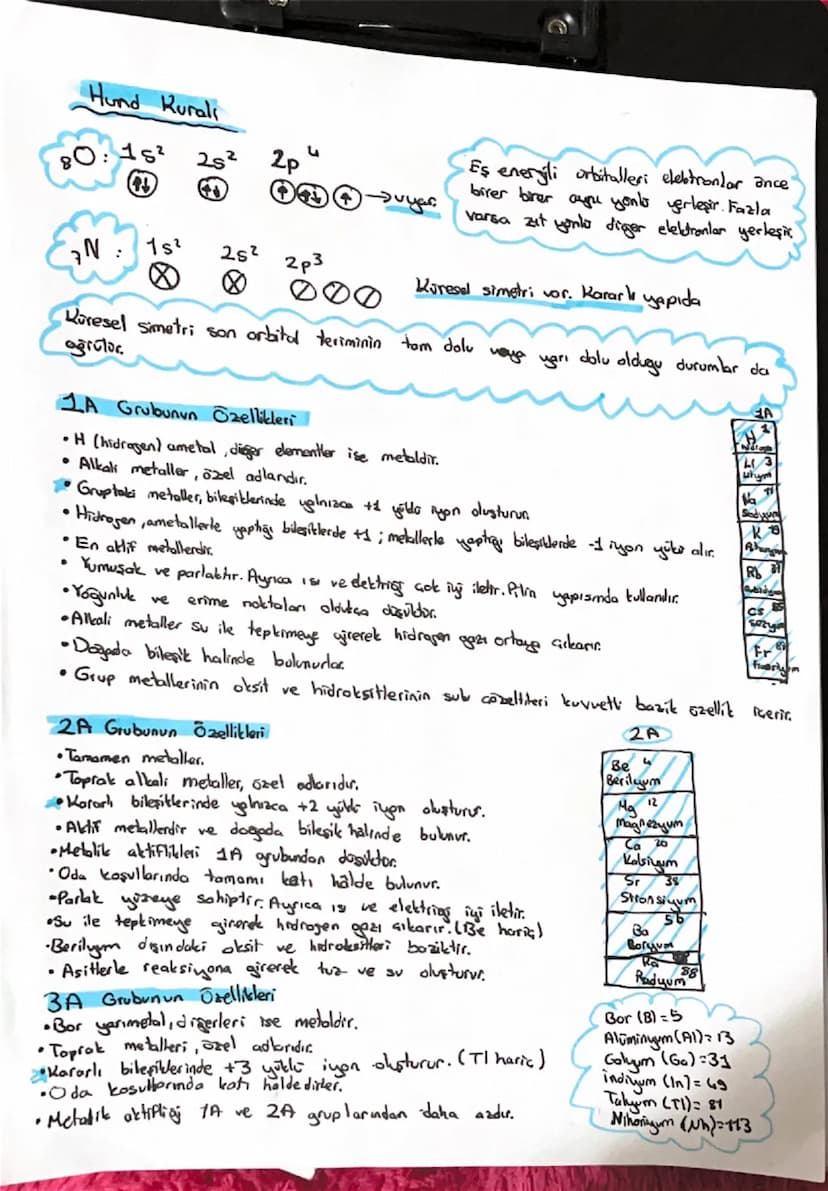 Hund Kuralı
8O: 1s² 2s² 2p⁴
→uyar.
Eş enerjili orbitalleri elektronlar önce
birer birer aynı yönlü yerleşir. Fazla
varsa zıt yönlü diğer elektronlar yerleşir.
7N: 1s² 2s² 2p³
Küresel simetri var. Kararlı yapıda
Küresel simetri son orbital teriminin tam dolu veya yarı dolu olduğu durumlar da
görülür.
1A Grubunun Özellikleri
• H (hidrojen) ametal, diğer elementler ise metaldir.
• Alkali metaller, özel adlarıdır.
• Gruptaki metaller, bileşiklerinde yalnızca +1 yüklü iyon oluşturur.
• Hidrojen, ametallerle yaptığı bileşiklerde +1; metallerle yaptığı bileşiklerde -1 iyon yükü alır.
• En aktif metallerdir.
• Yumuşak ve parlaktır. Ayrıca ısı ve elektriği çok iyi iletir. Pilin yapısında kullanılır.
• Yoğunluk ve erime noktaları oldukça düşüktür.
• Alkali metaller su ile tepkimeye girerek hidrojen gazı ortaya çıkarır.
• Doğada bileşik halinde bulunurlar.
• Grup metallerinin oksit ve hidroksitlerinin sulu çözeltileri kuvvetli bazik özellik içerir.
1A
H 1
Hidrojen
Li 3
Lityum
Na 11
Sodyum
K 19
Rb 37
Rubidyum
Cs 55
Sezyum
Fr 87
Fransiyum
2A Grubunun Özellikleri
• Tamamen metaller.
• Toprak alkali metaller, özel adlarıdır.
• Kararlı bileşiklerinde yalnızca +2 yüklü iyon oluşturur.
• Aktif metallerdir ve doğada bileşik halinde bulunur.
• Metalik aktiflikleri 1A grubundan düşüktür.
• Oda koşullarında tamamı katı hâlde bulunur.
• Parlak yüzeye sahiptir. Ayrıca ısı ve elektriği iyi iletir.
• Su ile tepkimeye girerek hidrojen gazı çıkarır. (Be hariç)
• Berilyum dışındaki oksit ve hidroksitleri baziktir.
• Asitlerle reaksiyona girerek tuz ve su oluşturur.
2A
Be 4
Berilyum
Mg 12
Magnezyum
Ca 20
Kalsiyum
Sr 38
Stronsiyum
56
Ba
Baryum
Ra 88
Radyum
3A Grubunun Özellikleri
• Bor yarımetal, diğerleri ise metaldir.
• Toprak metalleri, özel adlarıdır.
• Kararlı bileşiklerinde +3 yüklü iyon oluşturur. (Tl hariç)
• Oda koşullarında katı haldedirler.
• Metalik aktifliği 1A ve 2A gruplarından daha azdır.
Bor (B) = 5
Alüminyum (Al) = 13
Galyum (Ga) = 31
İndiyum (In) = 49
Talyum (Tl) = 81
Nihoniyum (Nh) = 113